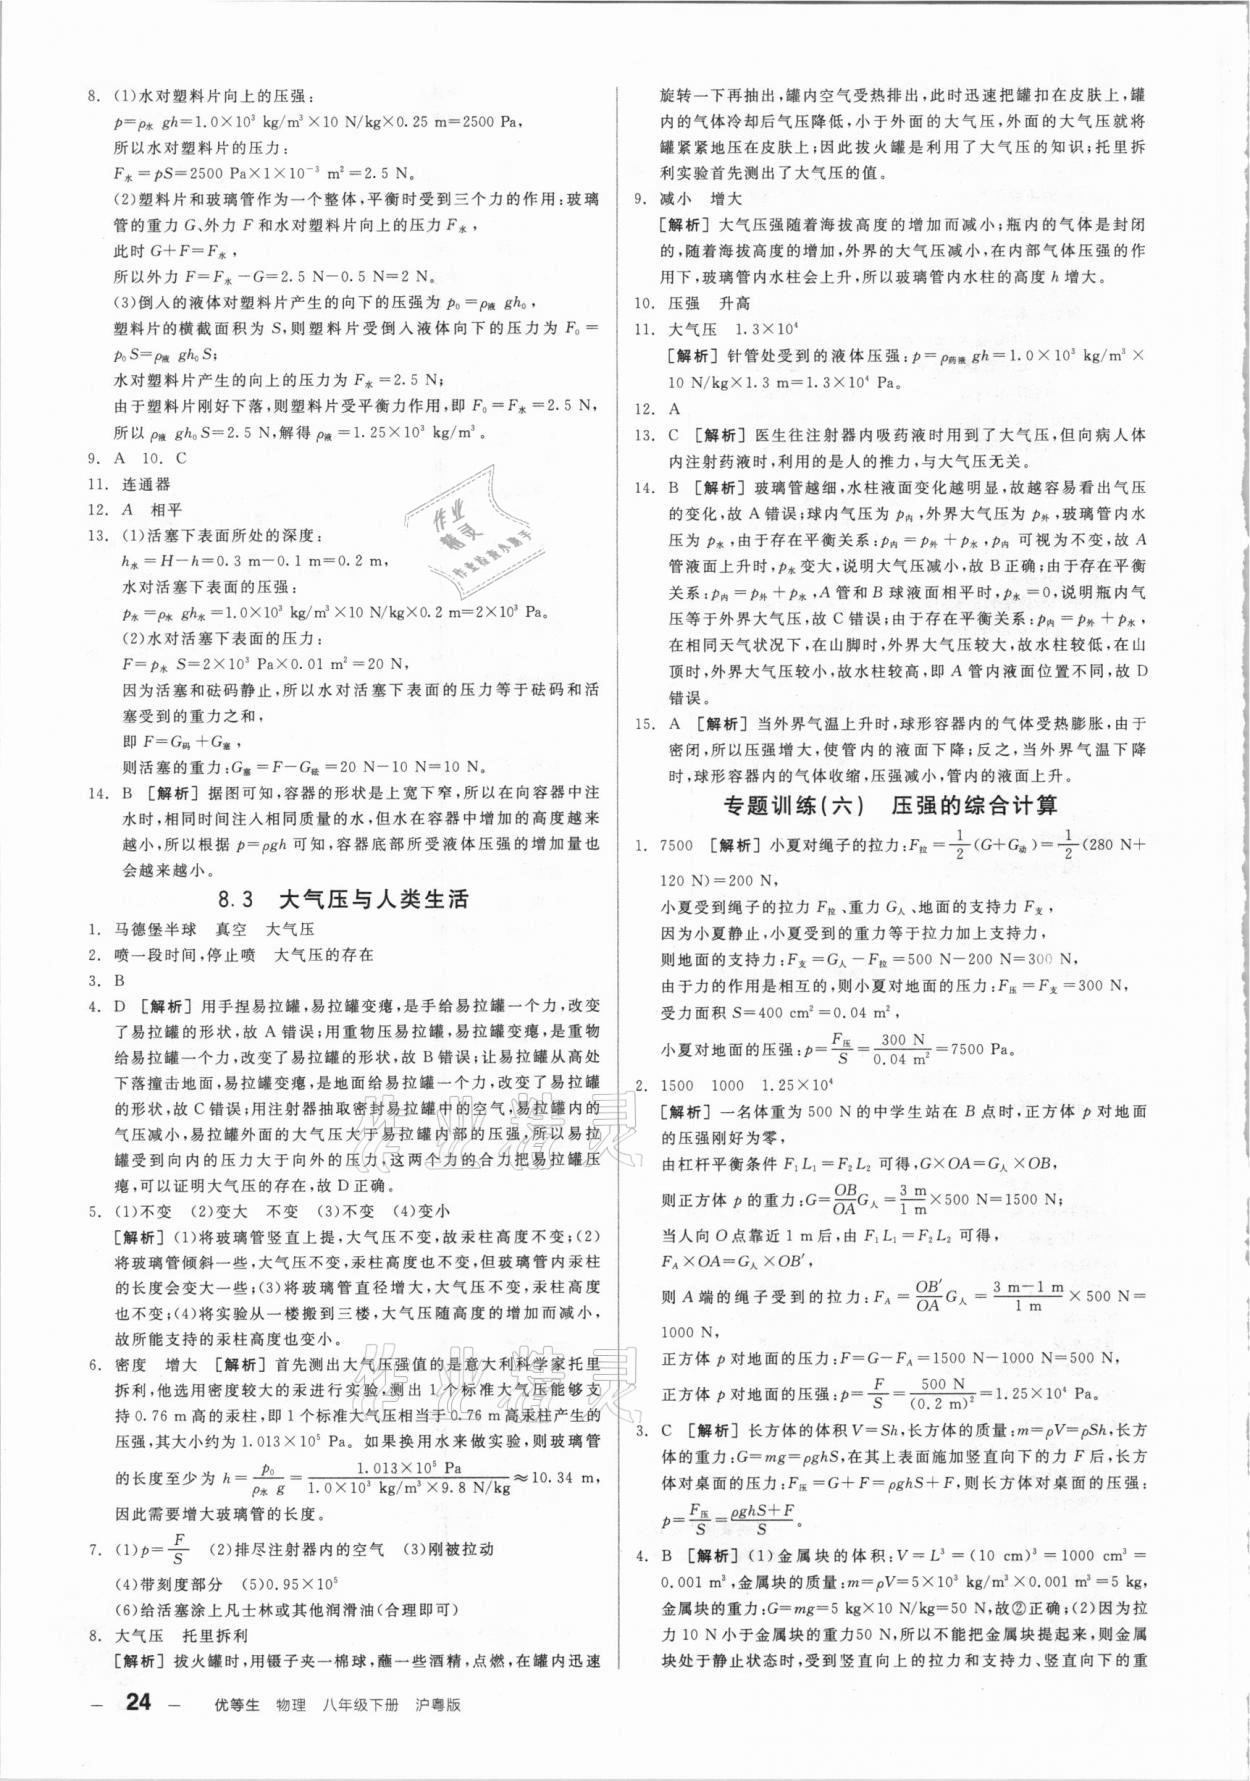 8. (1)水对塑料片向上的压强:
p=ρ水 gh=1.0×10³ kg/m³×10 N/kg×0.25 m=2500 Pa,
所以水对塑料片的压力:
F水=pS=2500 Pa×1×10⁻³ m²=2.5 N。
(2)塑料片和玻璃管作为一个整体,平衡时受到三个力的作用:玻璃
管的重力 G、外力 F 和水对塑料片向上的压力 F水,
此时 G+F=F水,
所以外力 F=F水-G=2.5 N-0.5 N=2 N。
(3)倒入的液体对塑料片产生的向下的压强为 p₀=ρ液 gh₀,
塑料片的横截面积为 S,则塑料片受倒入液体向下的压力为 F₀=
p₀S=ρ液 gh₀S;
水对塑料片产生的向上的压力为 F水=2.5 N;
由于塑料片刚好下落,则塑料片受平衡力作用,即 F₀=F水=2.5 N,
所以 ρ液 gh₀S=2.5 N,解得 ρ液=1.25×10³ kg/m³。
9. A 10. C
11. 连通器
12. A 相平
13. (1)活塞下表面所处的深度:
h水=H-h=0.3 m-0.1 m=0.2 m,
水对活塞下表面的压强:
p水=ρ水 gh水=1.0×10³ kg/m³×10 N/kg×0.2 m=2×10³ Pa。
(2)水对活塞下表面的压力:
F=p水 S=2×10³ Pa×0.01 m²=20 N,
因为活塞和砝码静止,所以水对活塞下表面的压力等于砝码和活
塞受到的重力之和,
即 F=G码+G塞,
则活塞的重力:G塞=F-G砝=20 N-10 N=10 N。
14. B [解析] 据图可知,容器的形状是上宽下窄,所以向容器中注
水时,相同时间注入相同质量的水,但水在容器中增加的高度越来
越小,所以根据 p=ρgh 可知,容器底部所受液体压强的增加量也
会越来越小。
8.3 大气压与人类生活
1. 马德堡半球 真空 大气压
2. 喷一段时间,停止喷 大气压的存在
3. B
4. D [解析] 用手捏易拉罐,易拉罐变瘪,是手给易拉罐一个力,改变
了易拉罐的形状,故 A 错误;用重物压易拉罐,易拉罐变瘪,是重物
给易拉罐一个力,改变了易拉罐的形状,故 B 错误;让易拉罐从高处
下落撞击地面,易拉罐变瘪,是地面给易拉罐一个力,改变了易拉罐
的形状,故 C 错误;用注射器抽取密封易拉罐中的空气,易拉罐内的
气压减小,易拉罐外面的大气压大于易拉罐内部的压强,所以易拉
罐受到向内的压力大于向外的压力,这两个力的合力把易拉罐压
瘪,可以证明大气压的存在,故 D 正确。
5. (1)不变 (2)变大 不变 (3)不变 (4)变小
[解析] (1)将玻璃管竖直上提,大气压不变,故汞柱高度不变;(2)
将玻璃管倾斜一些,大气压不变,汞柱高度也不变,但玻璃管内汞柱
的长度会变大一些;(3)将玻璃管直径增大,大气压不变,汞柱高度
也不变;(4)将实验从一楼搬到三楼,大气压随高度的增加而减小,
故所能支持的汞柱高度也变小。
6. 密度 增大 [解析] 首先测出大气压强值的是意大利科学家托里
拆利,他选用密度较大的汞进行实验,测出 1 个标准大气压能够支
持 0.76 m 高的汞柱,即 1 个标准大气压相当于 0.76 m 高汞柱产生的
压强,其大小约为 1.013×10⁵ Pa。如果换用水来做实验,则玻璃管
的长度至少为 h=p₀/(ρ水 g)=1.013×10⁵ Pa/(1.0×10³ kg/m³×9.8 N/kg)≈10.34 m,
因此需要增大玻璃管的长度。
7. (1)p=F/S (2)排尽注射器内的空气 (3)刚被拉动
(4)带刻度部分 (5)0.95×10⁵
(6)给活塞涂上凡士林或其他润滑油(合理即可)
8. 大气压 托里拆利
[解析] 拔火罐时,用镊子夹一棉球,蘸一些酒精,点燃,在罐内迅速
— 24 — 优等生 物理 八年级下册 沪粤版
旋转一下再抽出,罐内空气受热排出,此时迅速把罐扣在皮肤上,罐
内的气体冷却后气压降低,小于外面的大气压,外面的大气压就将
罐紧紧地压在皮肤上;因此拔火罐是利用了大气压的知识;托里拆
利实验首先测出了大气压的值。
9. 减小 增大
[解析] 大气压强随着海拔高度的增加而减小;瓶内的气体是封闭
的,随着海拔高度的增加,外界的大气压减小,在内部气体压强的作
用下,玻璃管内水柱会上升,所以玻璃管内水柱的高度 h 增大。
10. 压强 升高
11. 大气压 1.3×10⁴
[解析] 针管处受到的液体压强:p=ρ药液 gh=1.0×10³ kg/m³×
10 N/kg×1.3 m=1.3×10⁴ Pa。
12. A
13. C [解析] 医生往注射器内吸药液时用到了大气压,但向病人体
内注射药液时,利用的是人的推力,与大气压无关。
14. B [解析] 玻璃管越细,水柱液面变化越明显,故越容易看出气压
的变化,故 A 错误;球内气压为 p内,外界大气压为 p外,玻璃管内水
压为 p水,由于存在平衡关系:p内=p外+p水,p内 可视为不变,故 A
管液面上升时,p水变大,说明大气压减小,故 B 正确;由于存在平衡
关系:p内=p外+p水,A 管和 B 球液面相平时,p水=0,说明瓶内气
压等于外界大气压,故 C 错误;由于存在平衡关系:p内=p外+p水,
在相同天气状况下,在山脚时,外界大气压较大,故水柱较低,在山
顶时,外界大气压较小,故水柱较高,即 A 管内液面位置不同,故 D
错误。
15. A [解析] 当外界气温上升时,球形容器内的气体受热膨胀,由于
密闭,所以压强增大,使管内的液面下降;反之,当外界气温下降
时,球形容器内的气体收缩,压强减小,管内的液面上升。
专题训练(六) 压强的综合计算
1. 7500 [解析] 小夏对绳子的拉力:F拉=1/2(G+G动)=1/2(280 N+
120 N)=200 N,
小夏受到绳子的拉力 F拉、重力 G人、地面的支持力 F支,
因为小夏静止,小夏受到的重力等于拉力加上支持力,
则地面的支持力:F支=G人-F拉=500 N-200 N=300 N,
由于力的作用是相互的,则小夏对地面的压力:F压=F支=300 N,
受力面积 S=400 cm²=0.04 m²,
小夏对地面的压强:p=F压/S=300 N/0.04 m²=7500 Pa。
2. 1500 1000 1.25×10⁴
[解析] 一名体重为 500 N 的中学生站在 B 点时,正方体 p 对地面
的压强刚好为零,
由杠杆平衡条件 F₁L₁=F₂L₂ 可得,G×OA=G人×OB,
则正方体 p 的重力:G=OB/OA G人=3 m/1 m×500 N=1500 N;
当人向 O 点靠近 1 m 后,由 F₁L₁=F₂L₂ 可得:
F_A×OA=G人×OB′,
则 A 端的绳子受到的拉力:F_A=OB′/OA G人=(3 m-1 m)/1 m×500 N=
1000 N,
正方体 p 对地面的压力:F=G-F_A=1500 N-1000 N=500 N,
正方体 p 对地面的压强:p=F/S=500 N/(0.2 m)²=1.25×10⁴ Pa。
3. C [解析] 长方体的体积 V=Sh,长方体的质量:m=ρV=ρSh,长方
体的重力:G=mg=ρghS,在其上表面施加竖直向下的力 F 后,长方
体对桌面的压力:F压=G+F=ρghS+F,则长方体对桌面的压强:
p=F压/S=(ρghS+F)/S。
4. B [解析] (1)金属块的体积:V=L³=(10 cm)³=1000 cm³=
0.001 m³,金属块的质量:m=ρV=5×10³ kg/m³×0.001 m³=5 kg,
金属块的重力:G=mg=5 kg×10 N/kg=50 N,故②正确;(2)因为拉
力 10 N 小于金属块的重力50 N,所以不能把金属块提起来,则金属
块处于静止状态时,受到竖直向上的拉力和支持力、竖直向下的重
作业精灵
作业检查小助手
作业精灵
作业精灵